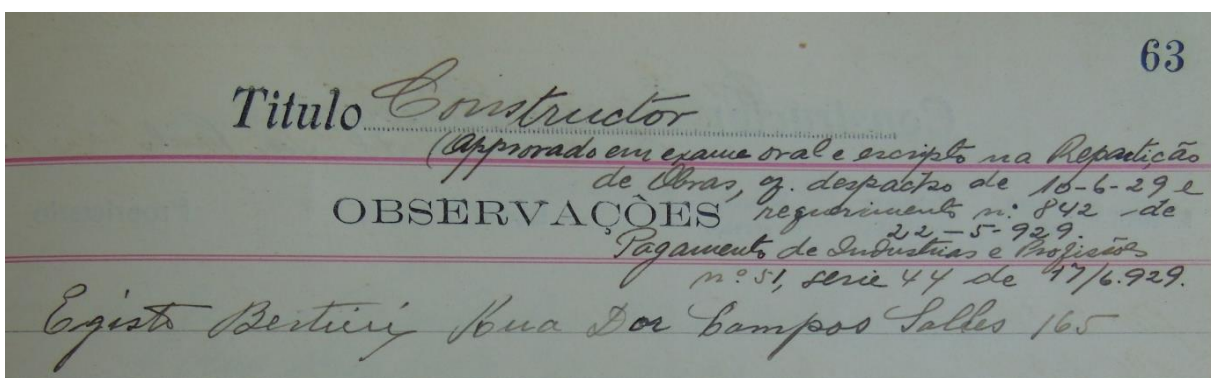 63
Titulo Constructor
(Approvado em exame oral e escripto na Repartição
de Obras, q. despacho de 10-6-29 e
OBSERVAÇÕES requerimento n: 842 de
22-5-929.
Pagamento de Industrias e Profissões
nº 51, serie 44 de 17/6.929.
Egisto Rua Dor Campos Salles 165